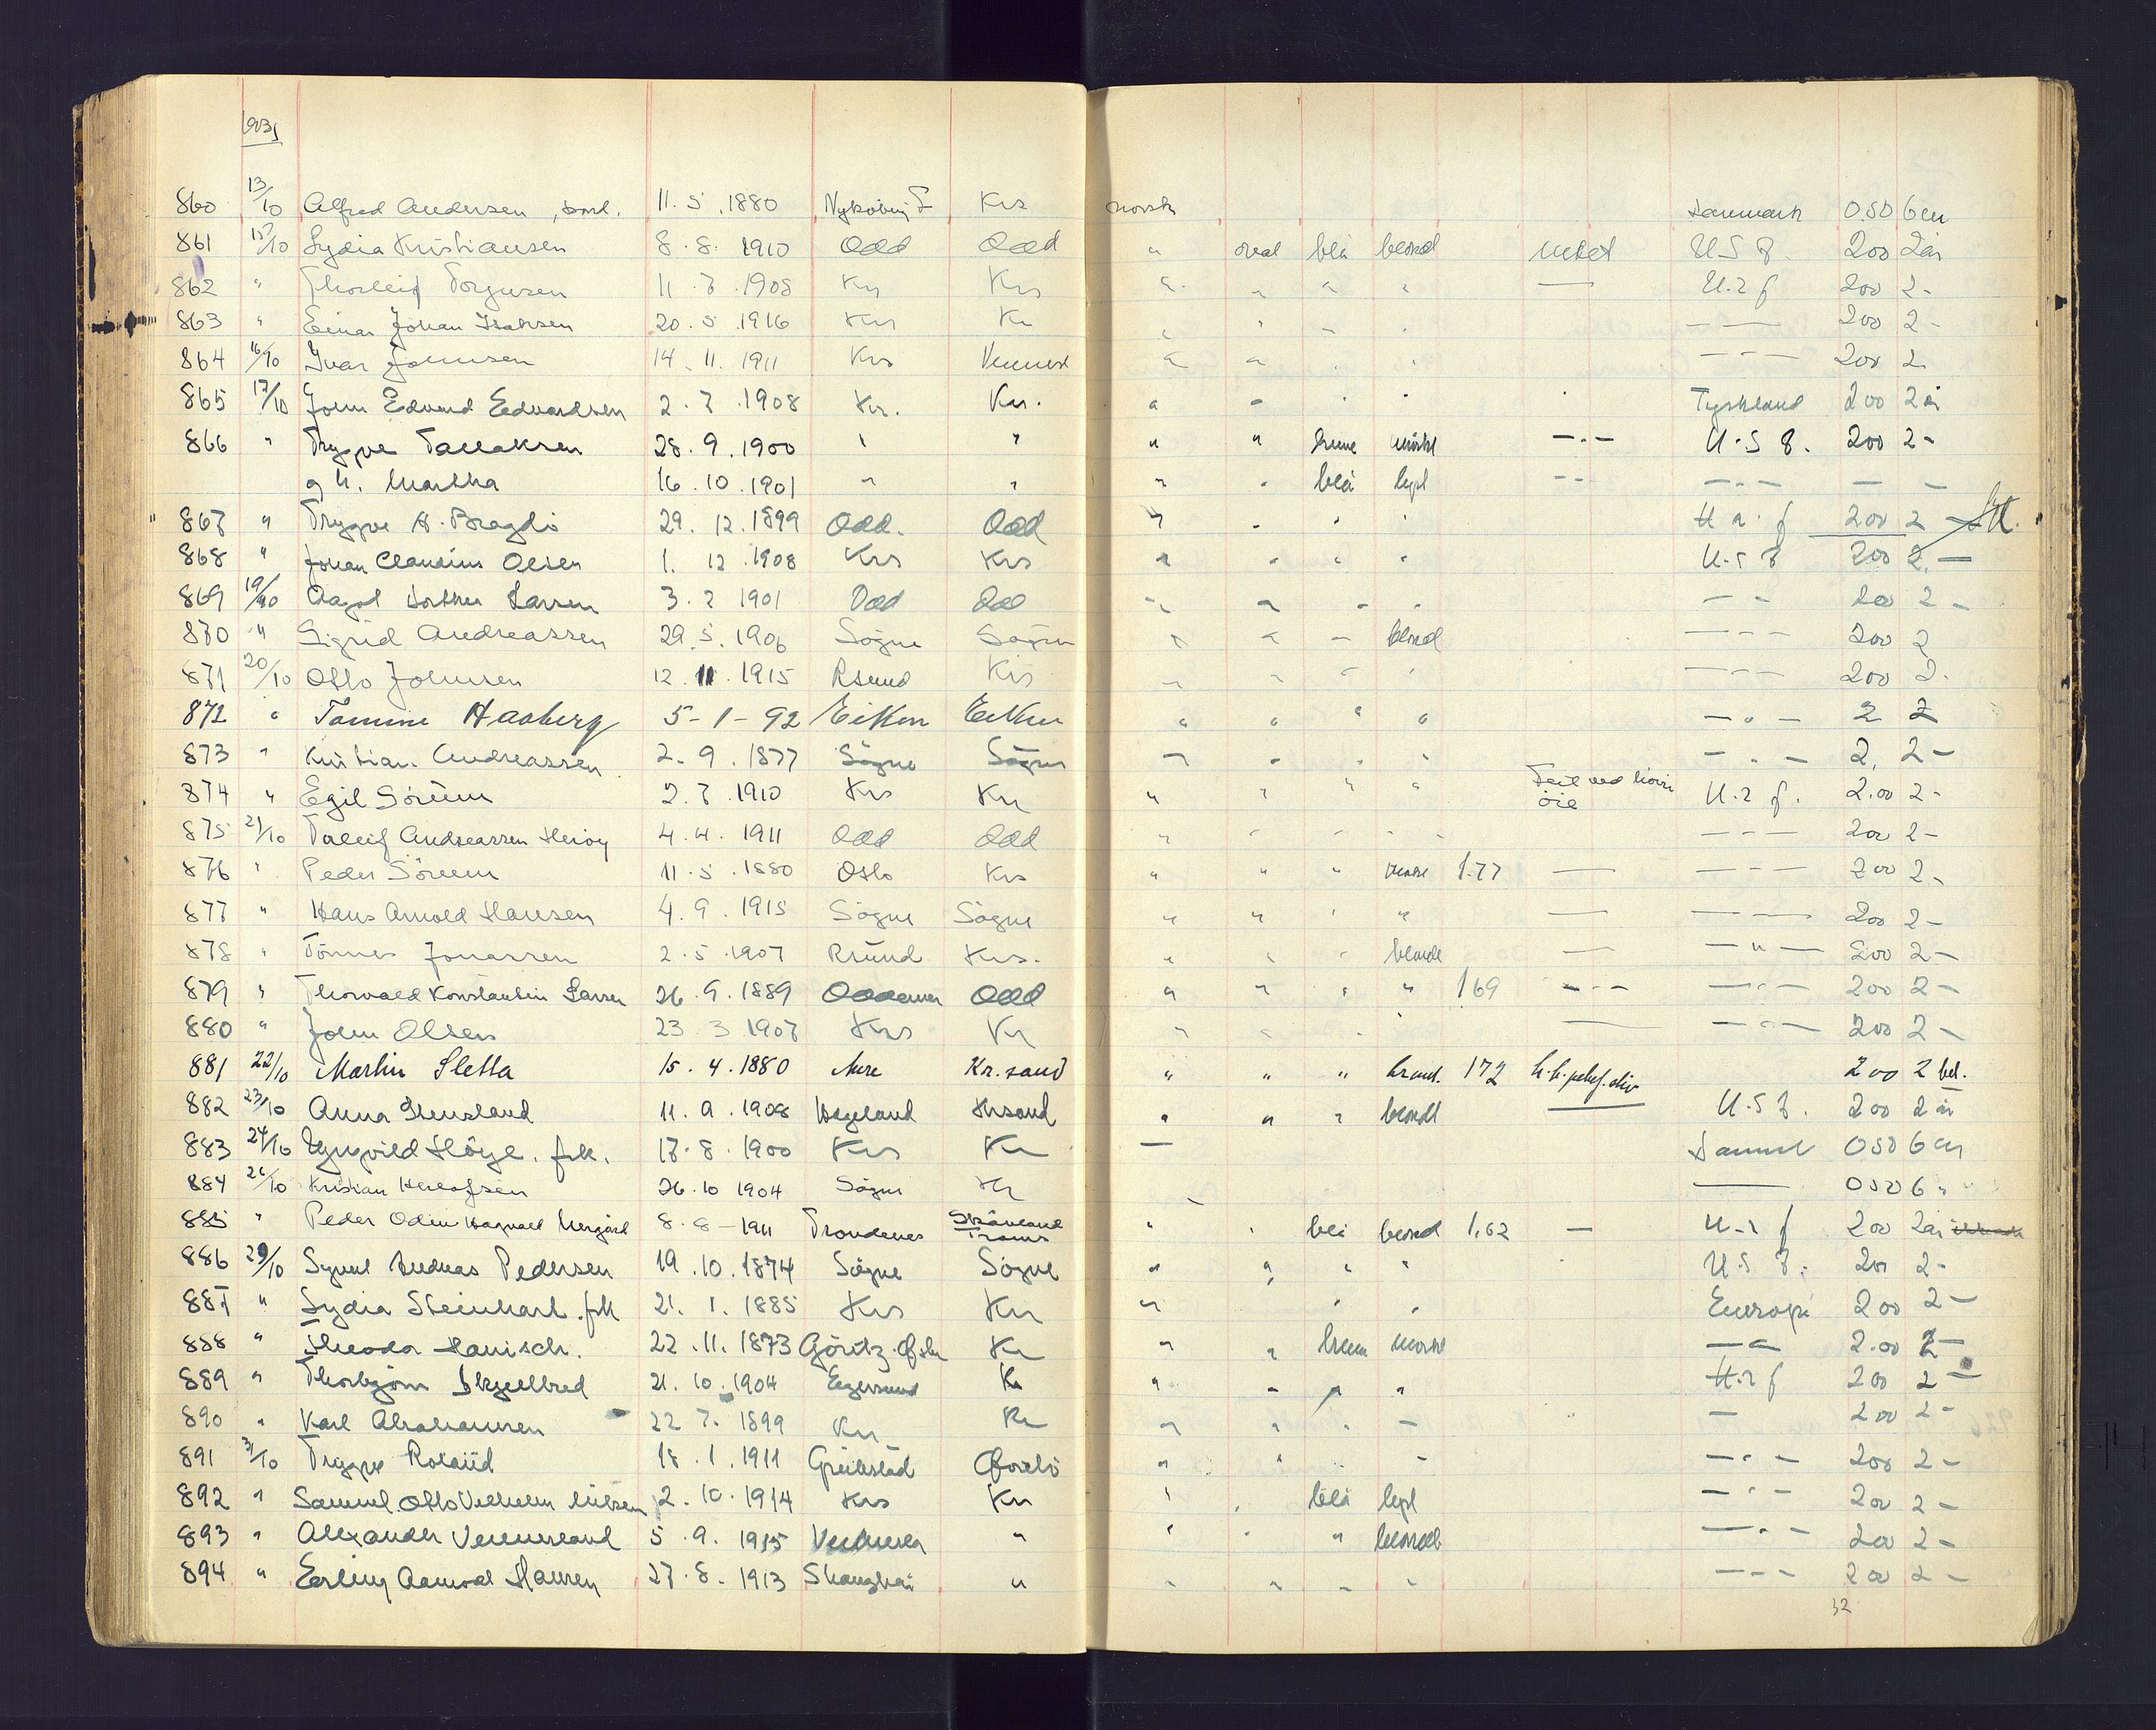 1931
860 13/10 Alfred Andersen, 11.5.1880 Nykøbing F Krs norsk Danmark 0.50 6 m
861 15/10 Lydia Kristiansen 8.8.1910 Odd Odd " oval blå blond intet U S F. 200 2 år
862 " Thorleif Torjusen 11.7.1908 Krs Krs " " " " — U.s f 200 2 -
863 " Einar Johan Isaksen 20.5.1916 Krs Kr " " " " — " — 200 2 -
864 16/10 Ivar Johnsen 14.11.1911 Krs Vennesl " " " " — " — 200 2
865 17/10 John Edvard Edvardsen 2.7.1908 Kr. Kr. " " " " " Tyskland 200 2 år
866 " Trygve Tallaksen 28.9.1900 " " " " brune mörkt — " — U.S F. 200 2 -
og h. Martha 16.10.1901 " " " " blå lyst - - — " — — -
867 " Trygve H. Bragdø 29.12.1899 Odd. Odd " " " " 200 2 -
868 " Johan Claudius Olsen 1.12.1908 Krs Krs " " " " U.S F 200 2. —
869 19/10 Aagot Larsen 3.7 1901 Odd Odd " " " " — " 200 2 -
870 " Sigrid Andreassen 29.5.1906 Søgne Søgne " " " blond — " — 200 2
871 20/10 Otto Johnsen 12.11.1915 Rsund Krs " " " " — " — 200 2.
872 " Tomine Haaberg 5-1-92 Eiken Eiken " " " " — " — 2 2
873 " Kristian Andreassen 2.9.1877 Søgne Søgne " " " " — " — 2. 2 -
874 " Egil Sörum 2.7.1910 Krs Kr " " " " Feil ved høire öie U.s f. 2.00 2 -
875 21/10 Andreassen 4.4.1911 Odd Odd " " " " — " — 200 2 -
876 " Peder Sörum 11.5.1880 Oslo Krs " " " 1.77 — — " — 200 2 -
877 " Hans Arnold Hansen 4.9.1915 Søgne Søgne " " " " — — " — 200 2 -
878 " Tönnes Jonassen 2.5.1907 Rsund Krs. " " " blonde — — " — 200 2 -
879 " Thorvald Konstantin Larsen 26.9.1889 Oddernes Odd " " " " 169 — " — — " — 200 2 -
880 " John Olsen 23.3 1907 Krs Kr " " " " — — " — 200 2 -
881 22/10 Martin Sletta 15.4.1880 Aure Kr.sand " " " 172 200 2 bel.
882 23/10 Anna Stensland 11.9.1908 Hægeland Krsand " " " blondt — U.S F. 200 2 år
883 24/10 Höye. frk. 17.8.1900 Krs Kr — 050 6 m
884 26/10 Kristian 26.10 1904 Søgne Kr — 050 6 "
885 " Peder Odin 8.8-1911 Trondenes Skånland Troms " " blå blond 1,62 — U.s f 200 2 år
886 29/10 Andreas Pedersen 19.10.1874 Søgne Søgne " " " " U.S F. 200 2 -
887 " Lydia Steinhart. frk 21.1.1885 Krs Kr " " " Europa 200 2 -
888 " Theodor Hanisch. 22.11.1873 Göritz Kr " " brun mörkt — " 2.00 2 -
889 " Thorbjørn Skjellbred 21.10.1904 Egersund Kr " " " " U.s f 200 2 -
890 " Karl Abrahamsen 22 7.1899 Kr Kr " " " " — 200 2 -
891 31/10 Trygve 18.1.1911 " " " — " — 200 2 -
892 " Samuel Otto Vilhelm Nilsen 2.10.1914 Krs Kr " " blå lyst — " — 200 2 -
893 " Alexander Vennesland 5.9.1915 Vennesla " " " " blondt — " — 200 2 -
894 " Erling Aanod Hansen 27.8.1913 Shanghai " " " " " — " — 200 2 -
32